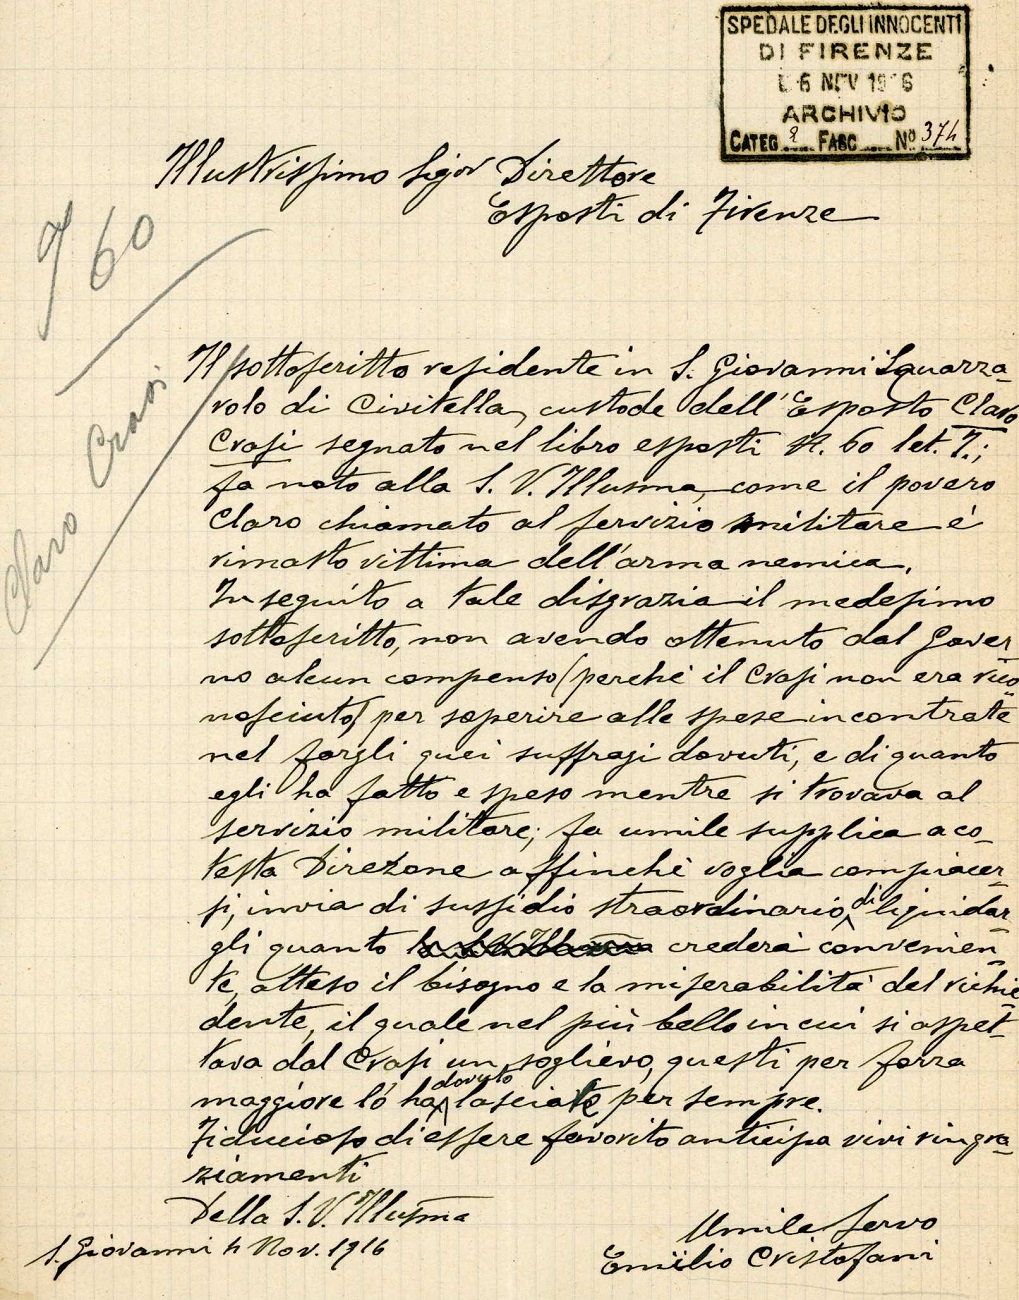 SPEDALE DEGLI INNOCENTI
DI FIRENZE
6 NOV 1916
ARCHIVIO
CATEG. 2 FASC.... No 374
Illustrissimo Sigor Direttore
Esposti di Firenze
T
60
Claro Crasi
Il sottoscritto residente in S. Giovanni Squarza-
volo di Civitella, custode dell'Esposto Claro
Crasi segnato nel libro esposti N. 60 let. T.;
fa noto alla S. V. Illusma, come il povero
Claro chiamato al servizio militare è
rimasto vittima dell'arma nemica.
In seguito a tale disgrazia il medesimo
sottoscritto, non avendo ottenuto dal Gover-
no alcun compenso (perchè il Crasi non era rico-
nosciuto) per soperire alle spese incontrate
nel fargli quei suffragi dovuti, e di quanto
egli ha fatto e speso mentre si trovava al
servizio militare; fa umile supplica a co-
testa Direzone affinchè voglia compiacer-
si, invia di sussidio straordinario, di liquidar-
gli quanto crederà convenien-
te, atteso il bisogno e la miserabilità del richie-
dente, il quale nel più bello in cui si aspet-
tava dal Crasi un soglievo, questi per forza
maggiore lo ha dovuto lasciare per sempre.
Fiducioso di essere favorito anticipa vivi ringra-
ziamenti
Della S. V. Illusma
Umile servo
S. Giovanni 4 Nov. 1916
Emilio Cristofani